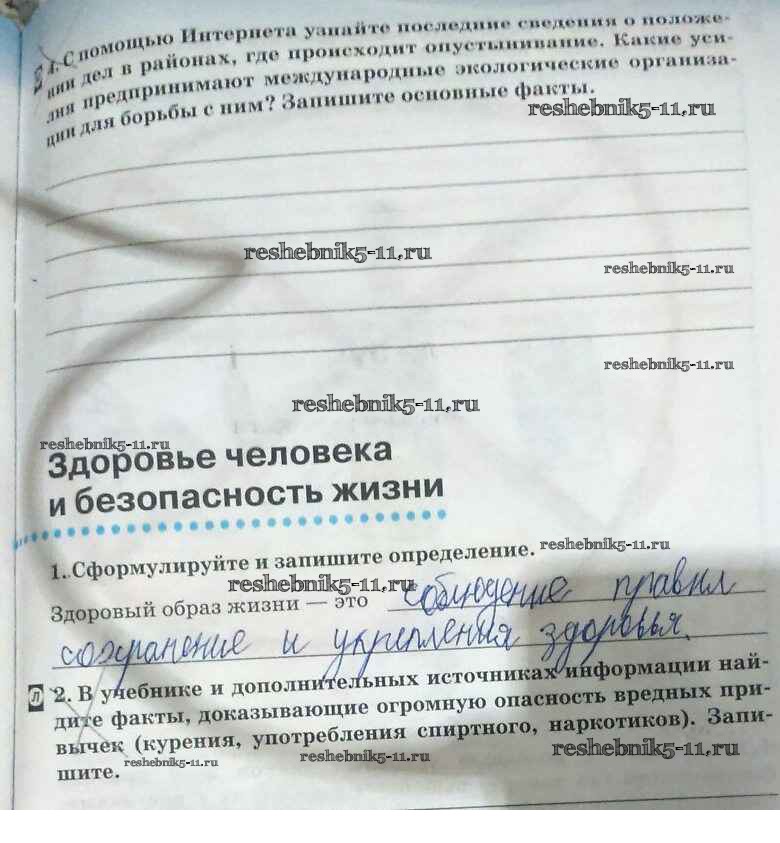 4. С помощью Интернета узнайте последние сведения о положе-
нии дел в районах, где происходит опустынивание. Какие уси-
лия предпринимают международные экологические организа-
ции для борьбы с ним? Запишите основные факты.
reshebnik5-11.ru
reshebnik5-11.ru
reshebnik5-11.ru
reshebnik5-11.ru
reshebnik5-11.ru
reshebnik5-11.ru
Здоровье человека
и безопасность жизни
1. Сформулируйте и запишите определение. reshebnik5-11.ru
reshebnik5-11.ru
Здоровый образ жизни — это соблюдение правил
сохранение и укрепления здоровья.
л 2. В учебнике и дополнительных источниках информации най-
дите факты, доказывающие огромную опасность вредных при-
вычек (курения, употребления спиртного, наркотиков). Запи-
шите.
reshebnik5-11.ru reshebnik5-11.ru reshebnik5-11.ru